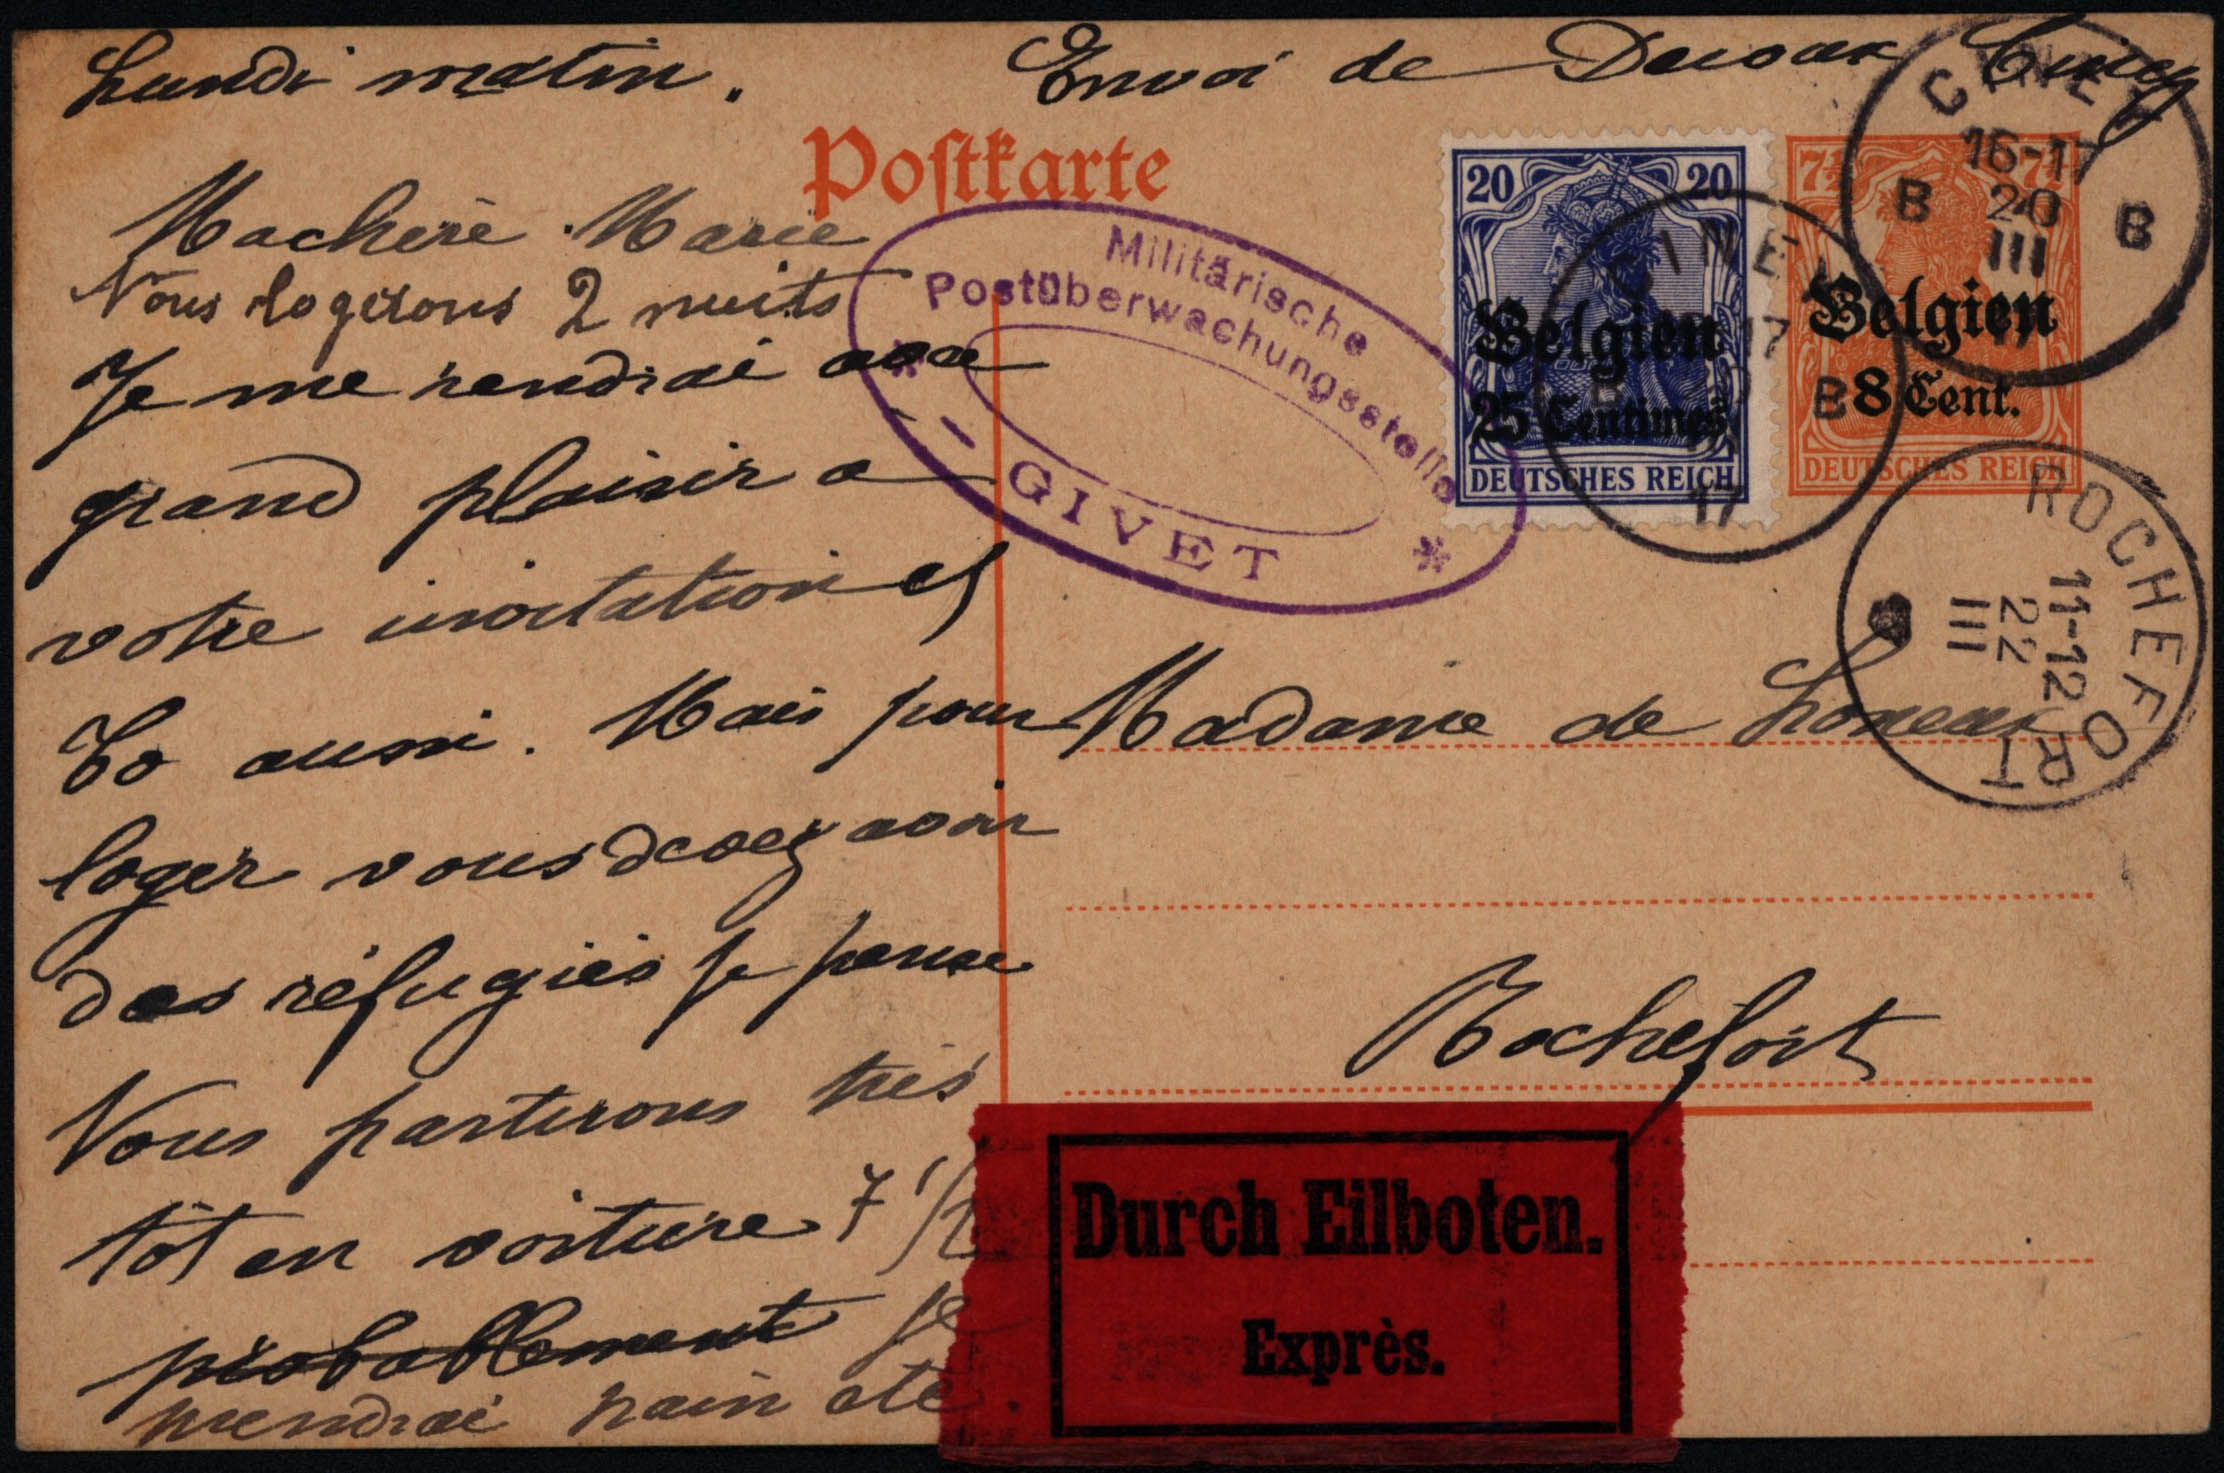 Lundi matin.
Envoi de
Postkarte
Ma chère Marie
Nous logerons 2 nuits
Je me rendrai avec
grand plaisir a
votre invitation et
Co aussi. Mais pour
loger vous devez avoir
des réfugiés je pense
Nous partirons très
tôt en voiture 7 1/2
probablement je
prendrai pain etc.
Militärische
Postüberwachungsstelle
* - GIVET *
20 20
Belgien
25 Centimes
DEUTSCHES REICH
7½ 7½
Belgien
8 Cent.
DEUTSCHES REICH
CINEY
16-17
B 20 B
III
17
CINEY
17
B B
17
ROCHEFORT
11-12
22
III
Madame de
Rochefort
Durch Eilboten.
Exprès.